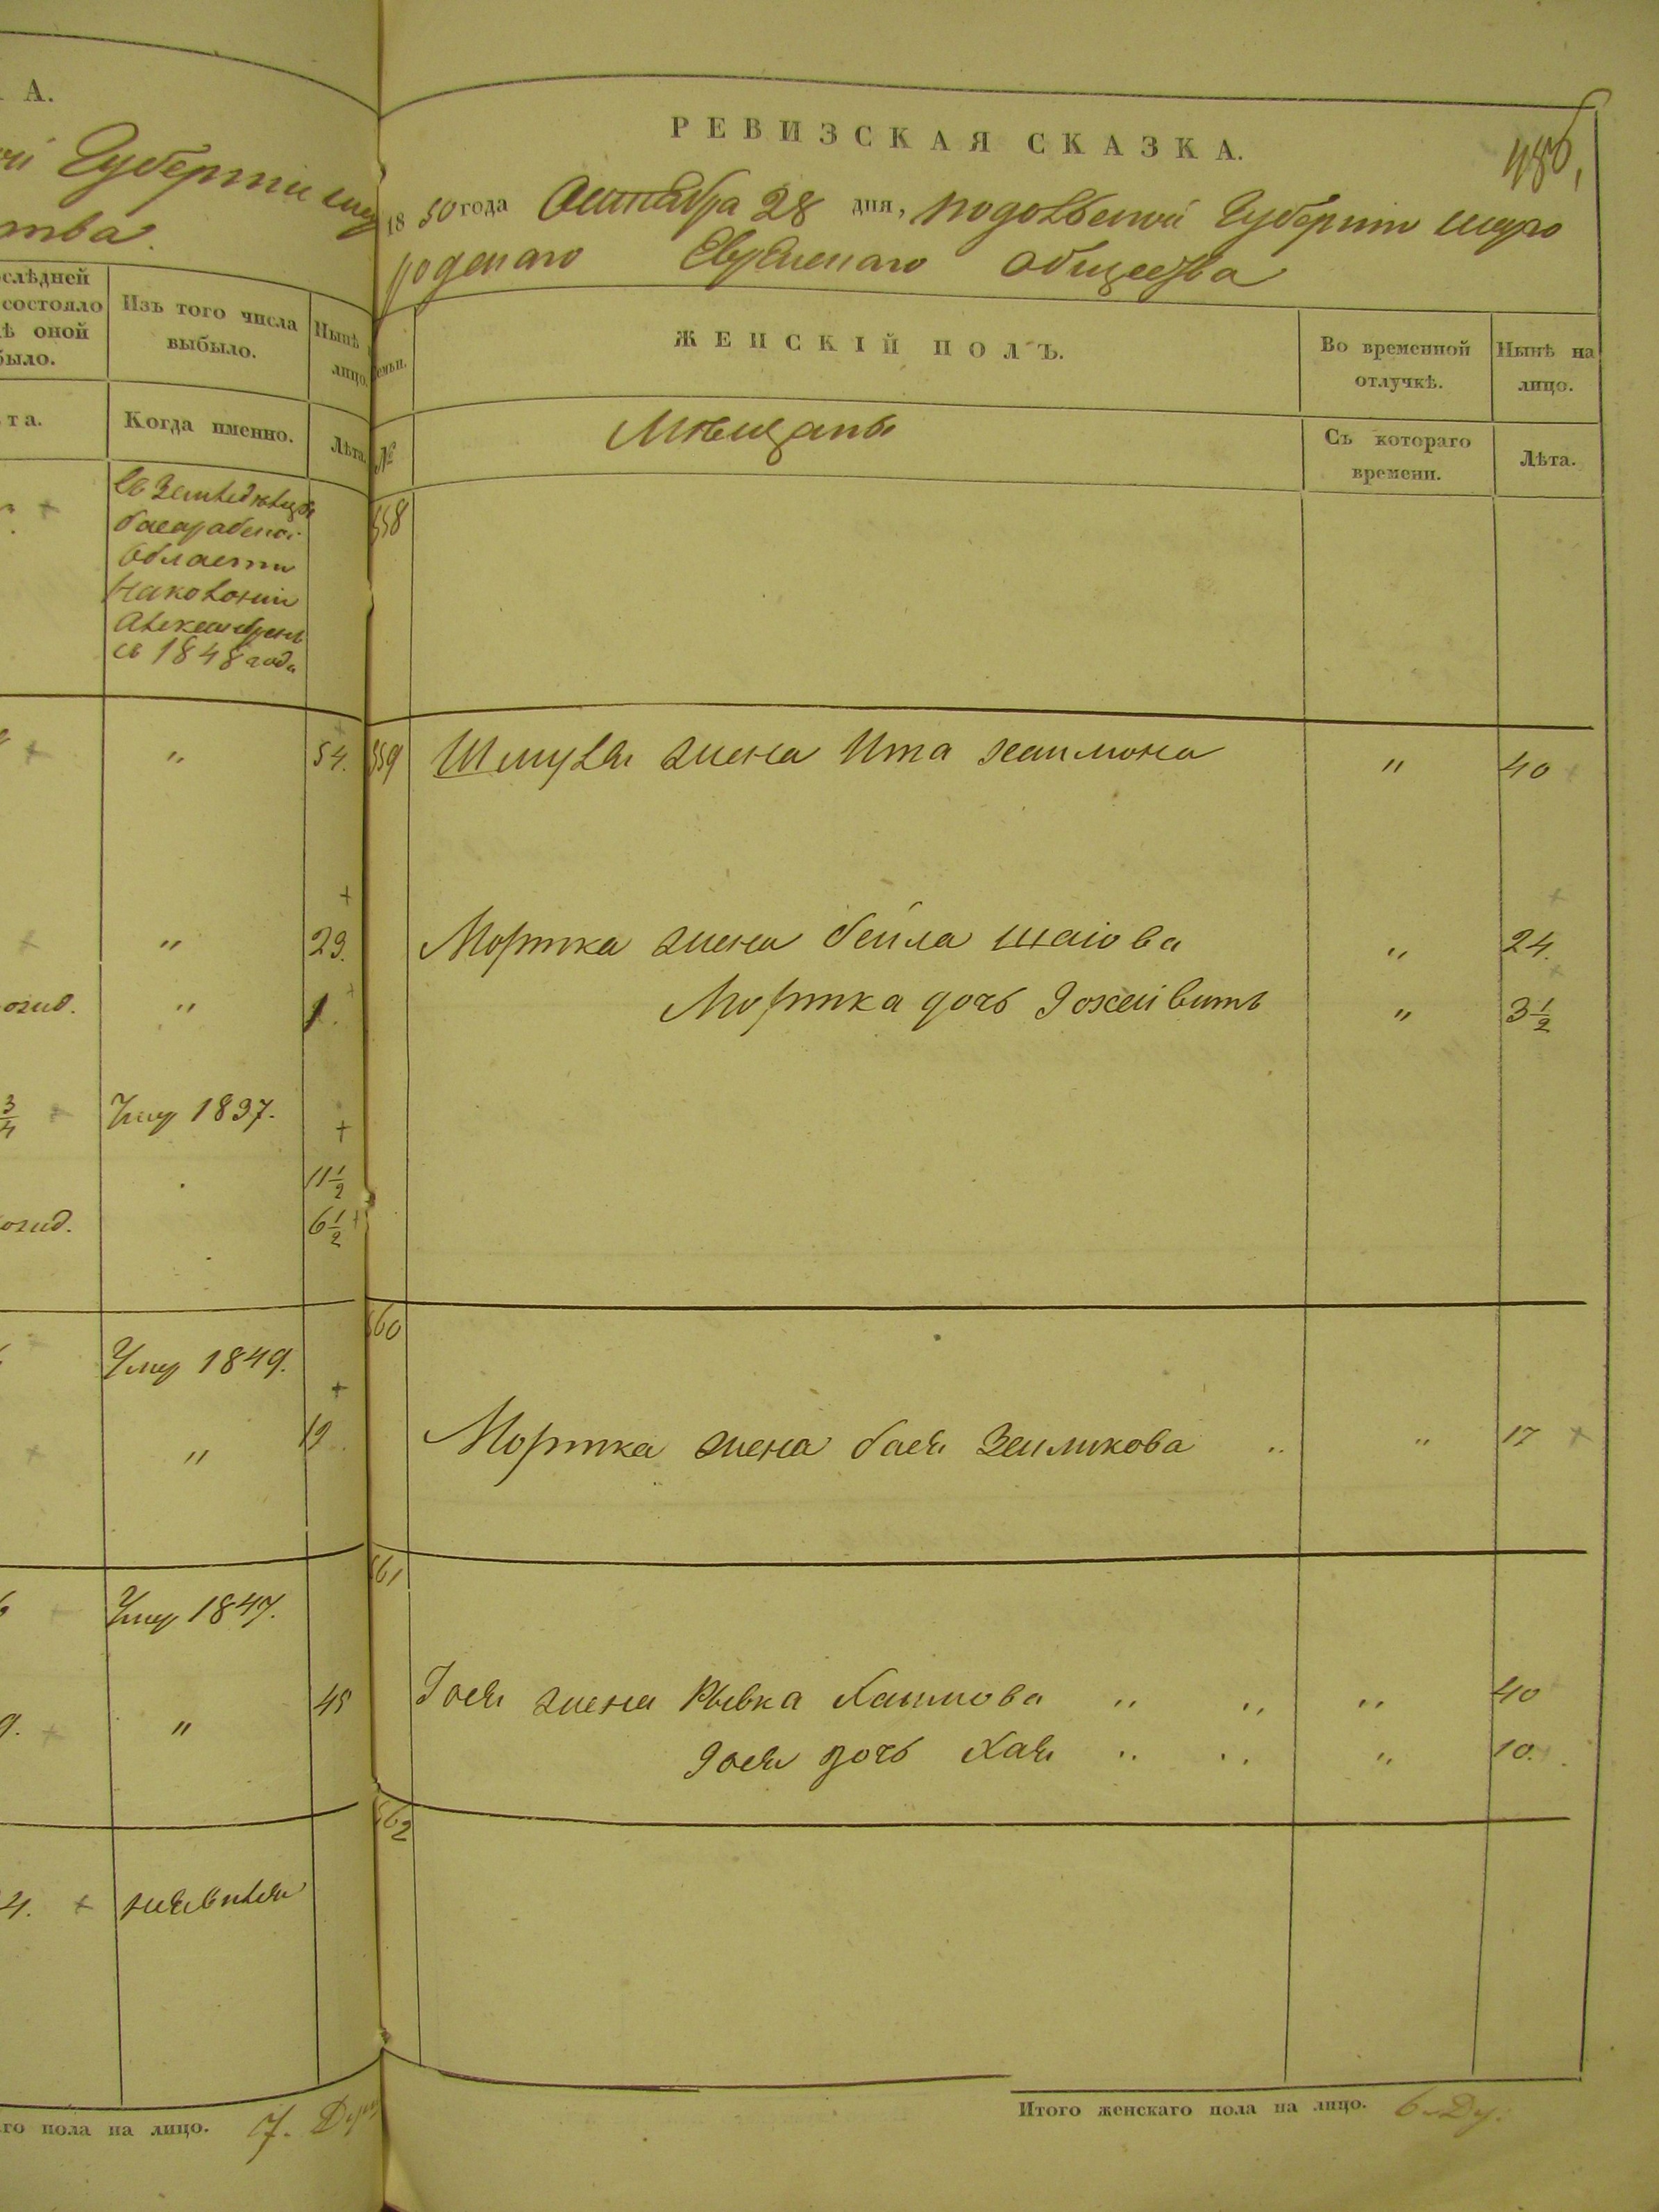 А.
Губерніи
тва.
ослѣдней
состояло
ѣ оной
было.
Изъ того числа
выбыло.
Нынѣ
лицо.
та.
Когда именно.
Лѣта.
въ Земледельцы
басарабской
области
на колонии
Александрень
съ 1848 года
"
54.
"
29.
рожд.
"
1.
3/4
Умер 1837.
11 1/2
рожд.
6 1/2
Умер 1849.
"
19
Умер 1847.
9.
"
45
4.
неявился
го пола на лицо. 7. Душ
РЕВИЗСКАЯ СКАЗКА.
486
1850 года Октября 28 дня, подольской Губернии шаро
родскаго Еврейскаго общества
Семьи.
ЖЕНСКІЙ ПОЛЪ.
Во временной
отлучкѣ.
Нынѣ на
лицо.
№
Мѣщаны
Съ котораго
времени.
Лѣта.
558
559 Шмуля жена Ита хаимова " 40
Мортка жена бейла шаіова " 24.
Мортка дочь " 3 1/2
560
Мортка жена бася Зелмкова " " 17
561
Іося жена Рывка Хаимова " " " 40
Іося дочь Хая " " " 10.
562
Итого женскаго пола на лицо. 6 Ду.